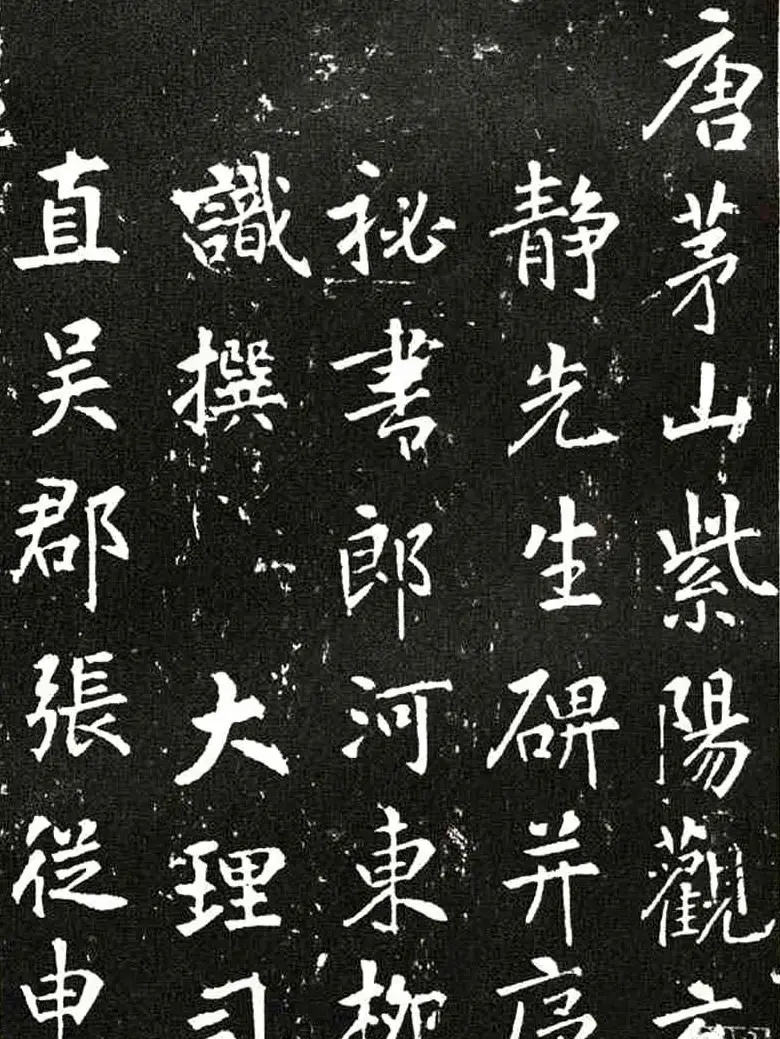 唐茅山紫陽觀玄
靜先生碑并序
祕書郎河東柳
識撰 大理司
直吳郡張從申